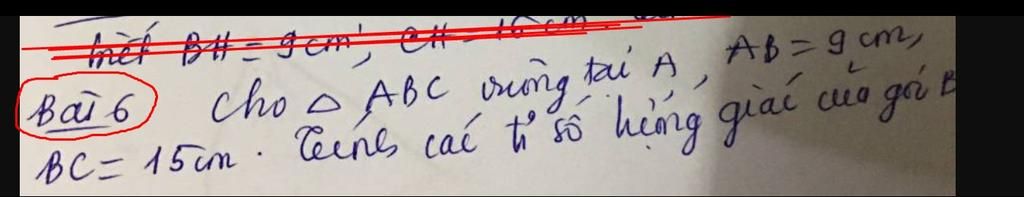 biết BH = 9cm, CH = 16cm.
Bài 6 Cho △ ABC vuông tại A, AB = 9 cm,
BC = 15cm. Tính các tỉ số lượng giác của góc B